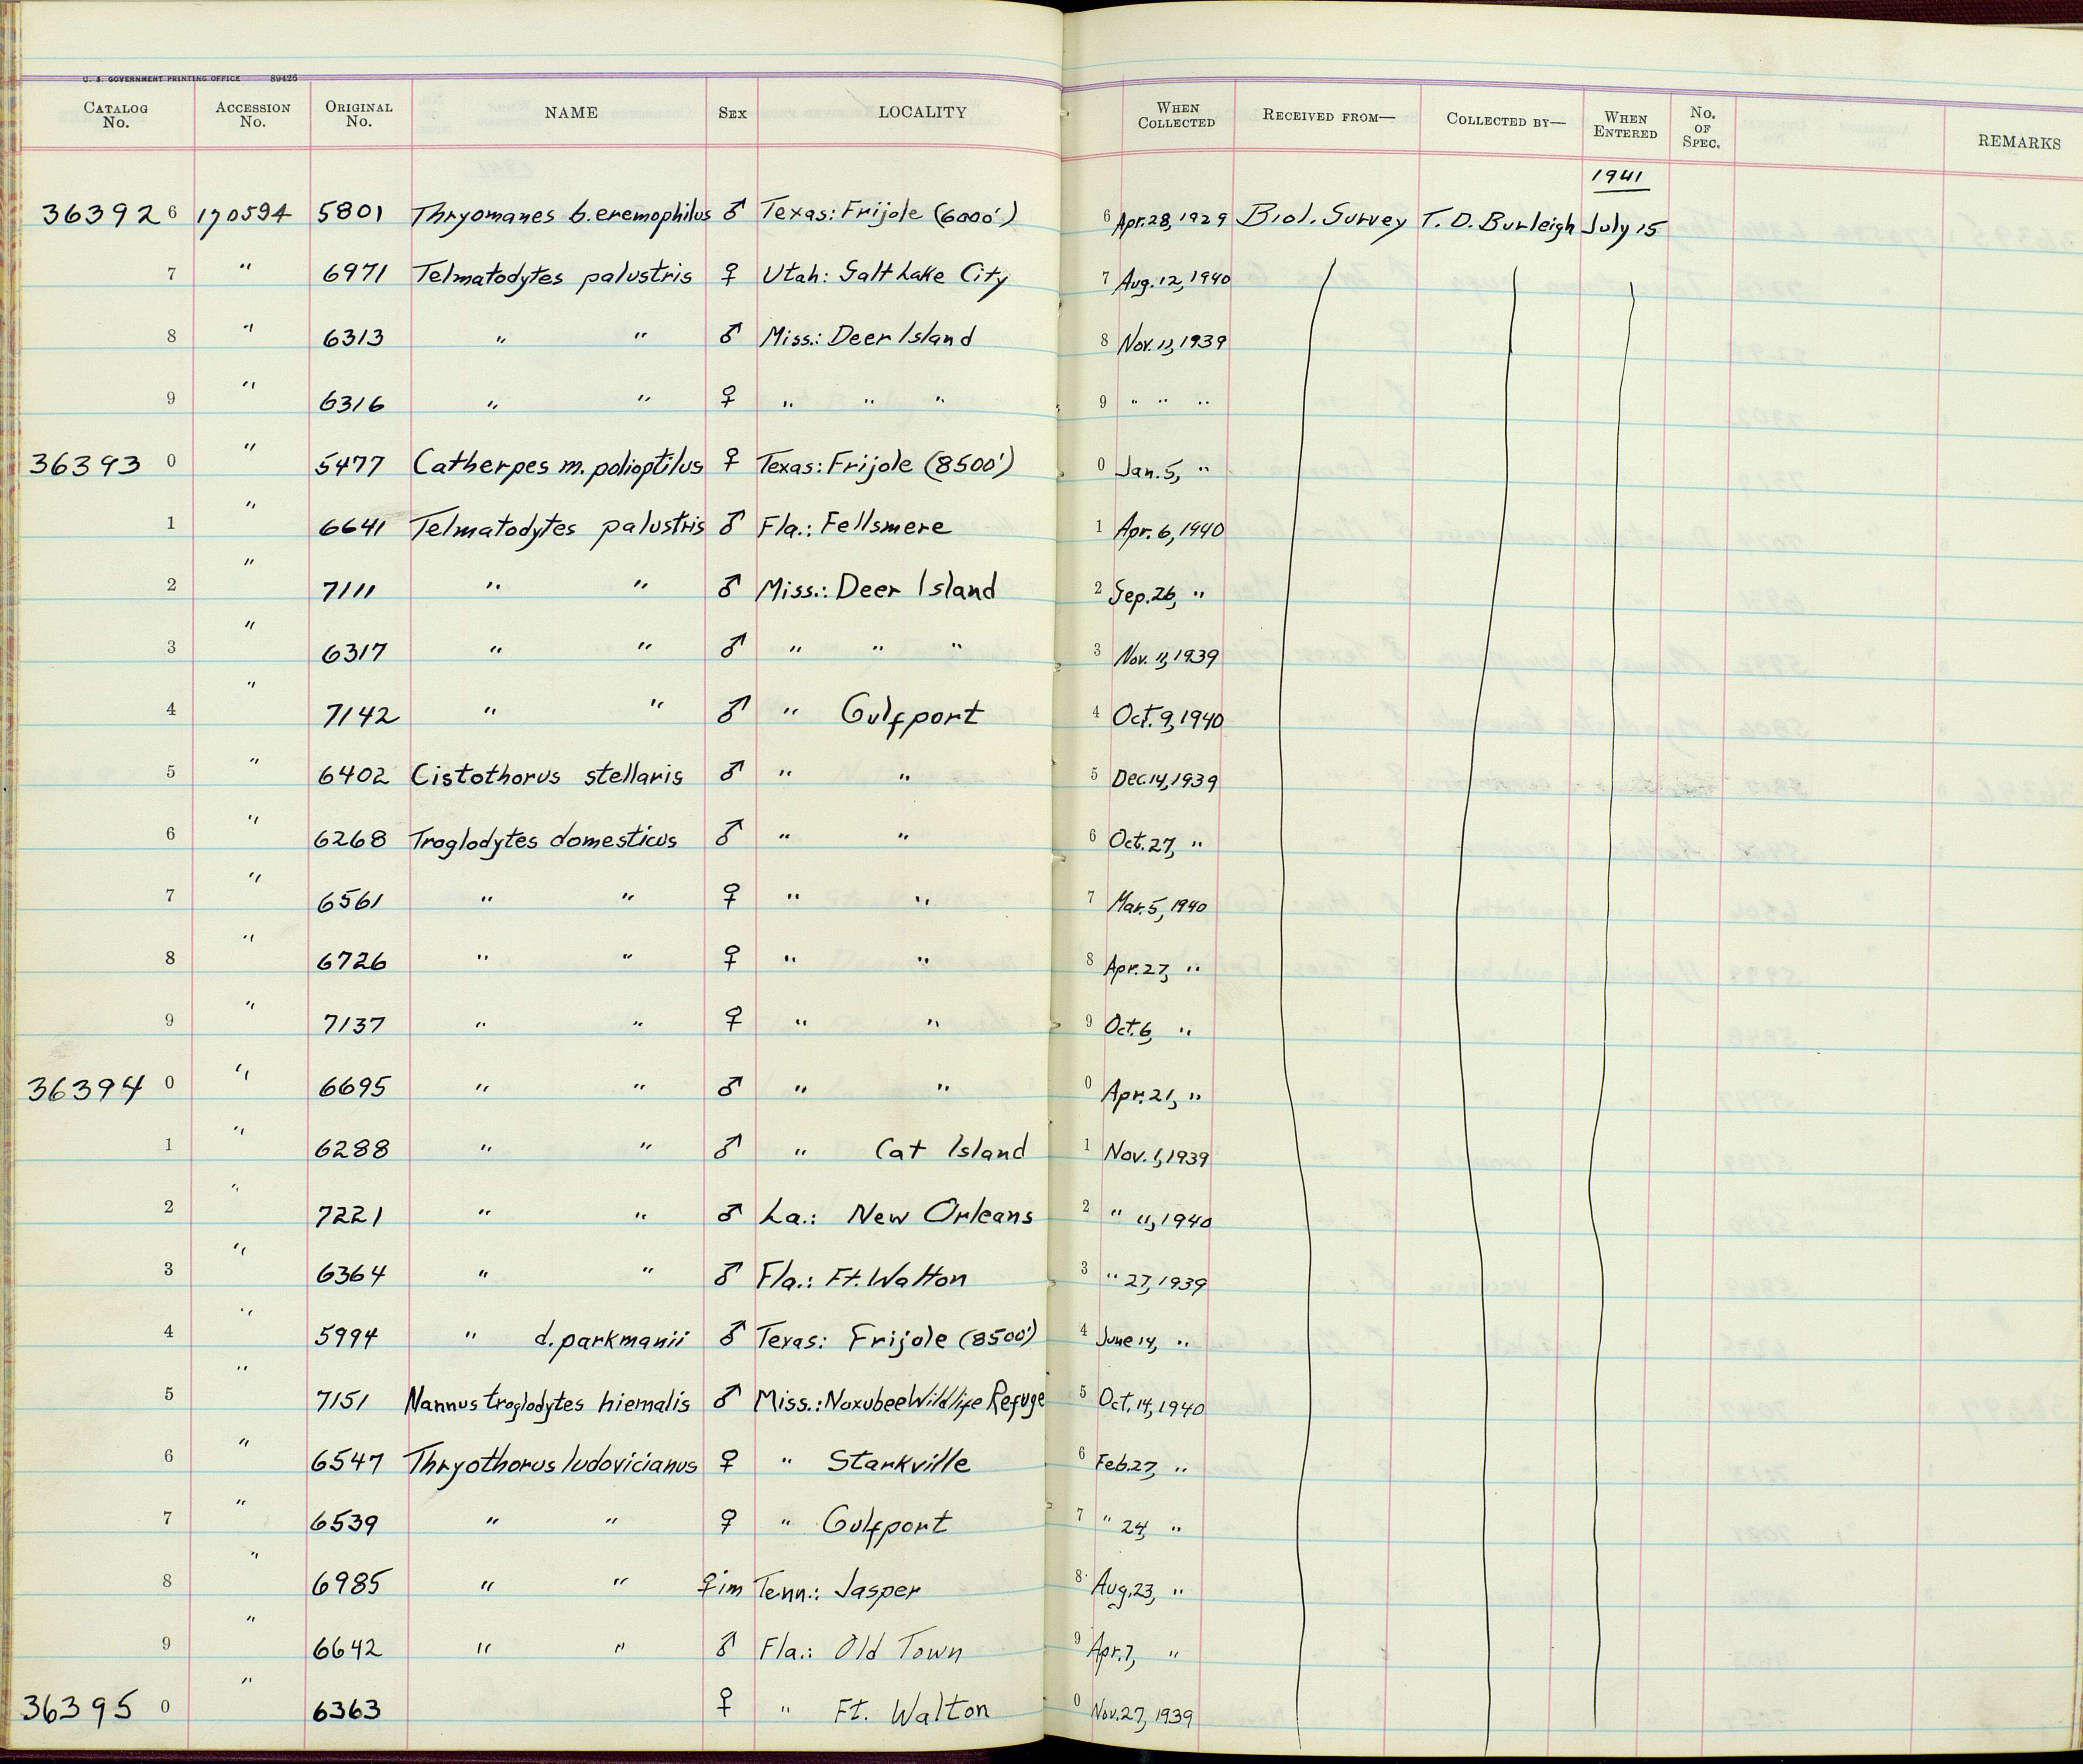 U. S. GOVERNMENT PRINTING OFFICE 89426
CATALOG No. ACCESSION No. ORIGINAL No. NAME SEX LOCALITY WHEN COLLECTED RECEIVED FROM— COLLECTED BY— WHEN ENTERED No. OF SPEC. REMARKS
1941
36392 6 170594 5801 Thryomanes b. eremophilus ♂ Texas: Frijole (6000') 6 Apr. 28, 1929 Biol. Survey T. D. Burleigh July 15
7 " 6971 Telmatodytes palustris ♀ Utah: Salt Lake City 7 Aug. 12, 1940
8 " 6313 " " ♂ Miss.: Deer Island 8 Nov. 11, 1939
9 " 6316 " " ♀ " " " 9 " " "
36393 0 " 5477 Catherpes m. polioptilus ♀ Texas: Frijole (8500') 0 Jan. 5, "
1 " 6641 Telmatodytes palustris ♂ Fla.: Fellsmere 1 Apr. 6, 1940
2 " 7111 " " ♂ Miss.: Deer Island 2 Sep. 26, "
3 " 6317 " " ♂ " " " 3 Nov. 11, 1939
4 " 7142 " " ♂ " Gulfport 4 Oct. 9, 1940
5 " 6402 Cistothorus stellaris ♂ " " 5 Dec. 14, 1939
6 " 6268 Troglodytes domesticus ♂ " " 6 Oct. 27, "
7 " 6561 " " ♀ " " 7 Mar. 5, 1940
8 " 6726 " " ♀ " " 8 Apr. 27, "
9 " 7137 " " ♀ " " 9 Oct. 6, "
36394 0 " 6695 " " ♂ " " 0 Apr. 21, "
1 " 6288 " " ♂ " Cat Island 1 Nov. 1, 1939
2 " 7221 " " ♂ La.: New Orleans 2 " 11, 1940
3 " 6364 " " ♂ Fla.: Ft. Walton 3 " 27, 1939
4 " 5994 " d. parkmanii ♂ Texas: Frijole (8500') 4 June 14, "
5 " 7151 Nannus troglodytes hiemalis ♂ Miss.: Noxubee Wildlife Refuge 5 Oct. 14, 1940
6 " 6547 Thryothorus ludovicianus ♀ " Starkville 6 Feb. 27, "
7 " 6539 " " ♀ " Gulfport 7 " 24, "
8 " 6985 " " ♀ im Tenn.: Jasper 8 Aug. 23, "
9 " 6642 " " ♂ Fla.: Old Town 9 Apr. 7, "
36395 0 " 6363 ♀ " Ft. Walton 0 Nov. 27, 1939